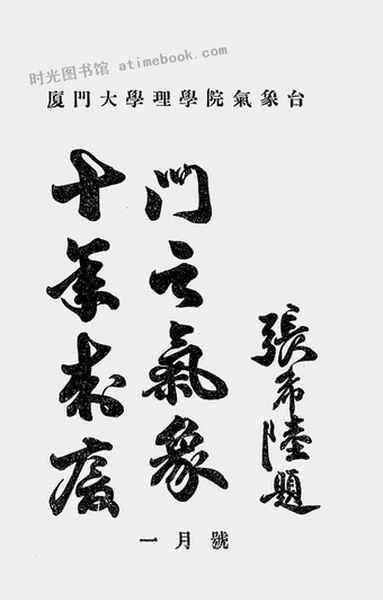 时光图书馆 atimebook.com
厦門大學理學院氣象台
十年來厦
門之氣象
張希陸題
一月號